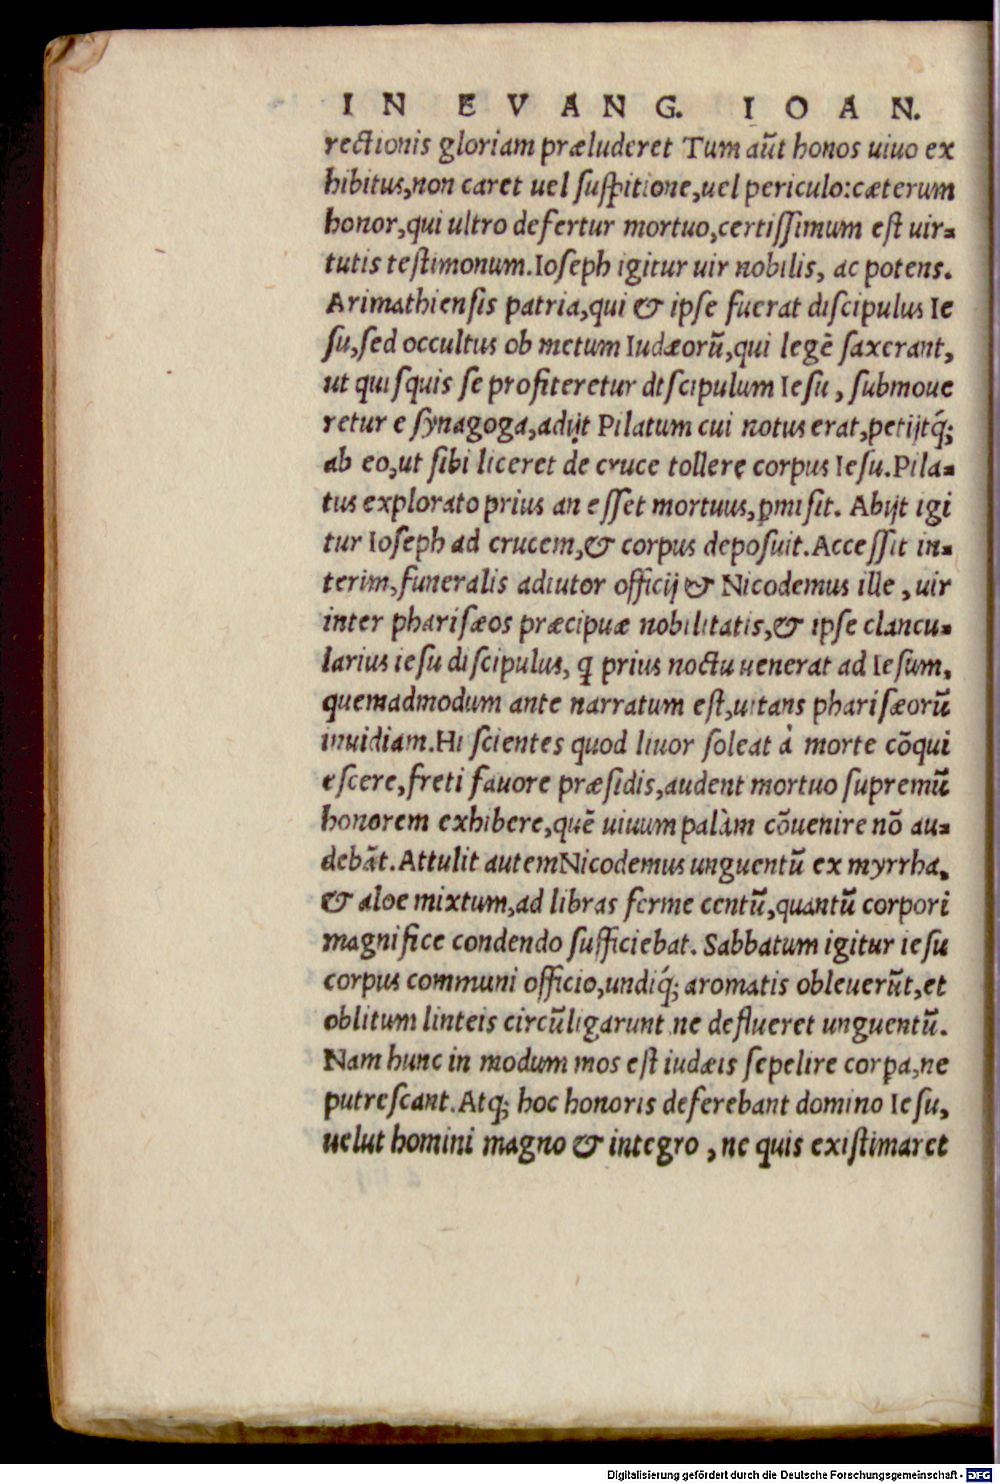 IN EVANG. IOAN.
rectionis gloriam præluderet Tum aūt honos uiuo ex
hibitus,non caret uel suspitione,uel periculo:cæterum
honor,qui ultro defertur mortuo,certissimum est uir-
tutis testimonum.Ioseph igitur uir nobilis, ac potens.
Arimathiensis patria,qui & ipse fuerat discipulus Ie
su,sed occultus ob metum Iudæorū,qui legē saxerant,
ut quisquis se profiteretur discipulum Iesu, submoue
retur e synagoga,adijt Pilatum cui notus erat,petijtq́;
ab eo,ut sibi liceret de cruce tollere corpus Iesu.Pila-
tus explorato prius an esset mortuus,ꝑmisit. Abijt igi
tur Ioseph ad crucem,& corpus deposuit.Accessit in-
terim,funeralis adiutor officij & Nicodemus ille, uir
inter pharisæos præcipuæ nobilitatis,& ipse clancu-
larius iesu discipulus, q̃ prius noctu uenerat ad Iesum,
quemadmodum ante narratum est,uitans pharisæorū
inuidiam.Hi scientes quod liuor soleat à morte cōqui
escere,freti fauore præsidis,audent mortuo supremū
honorem exhibere,quē uiuum palàm cōuenire nō au-
debāt.Attulit autemNicodemus unguentū ex myrrha,
& aloe mixtum,ad libras ferme centū,quantū corpori
magnifice condendo sufficiebat. Sabbatum igitur iesu
corpus communi officio,undiq́; aromatis obleuerūt,et
oblitum linteis circūligarunt ne deflueret unguentū.
Nam hunc in modum mos est iudæis sepelire corꝑa,ne
putrescant.Atq; hoc honoris deferebant domino Iesu,
uelut homini magno & integro, ne quis existimaret
Digitalisierung gefördert durch die Deutsche Forschungsgemeinschaft - DFG